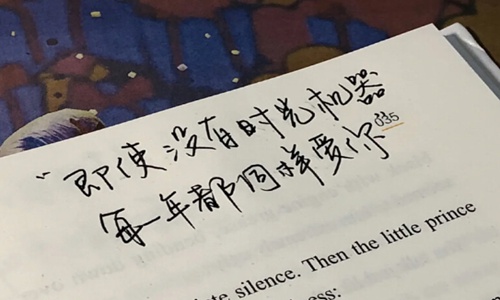 “即使没有时光机器
035
每一年都同样爱你
te silence. Then the little prince
ess: